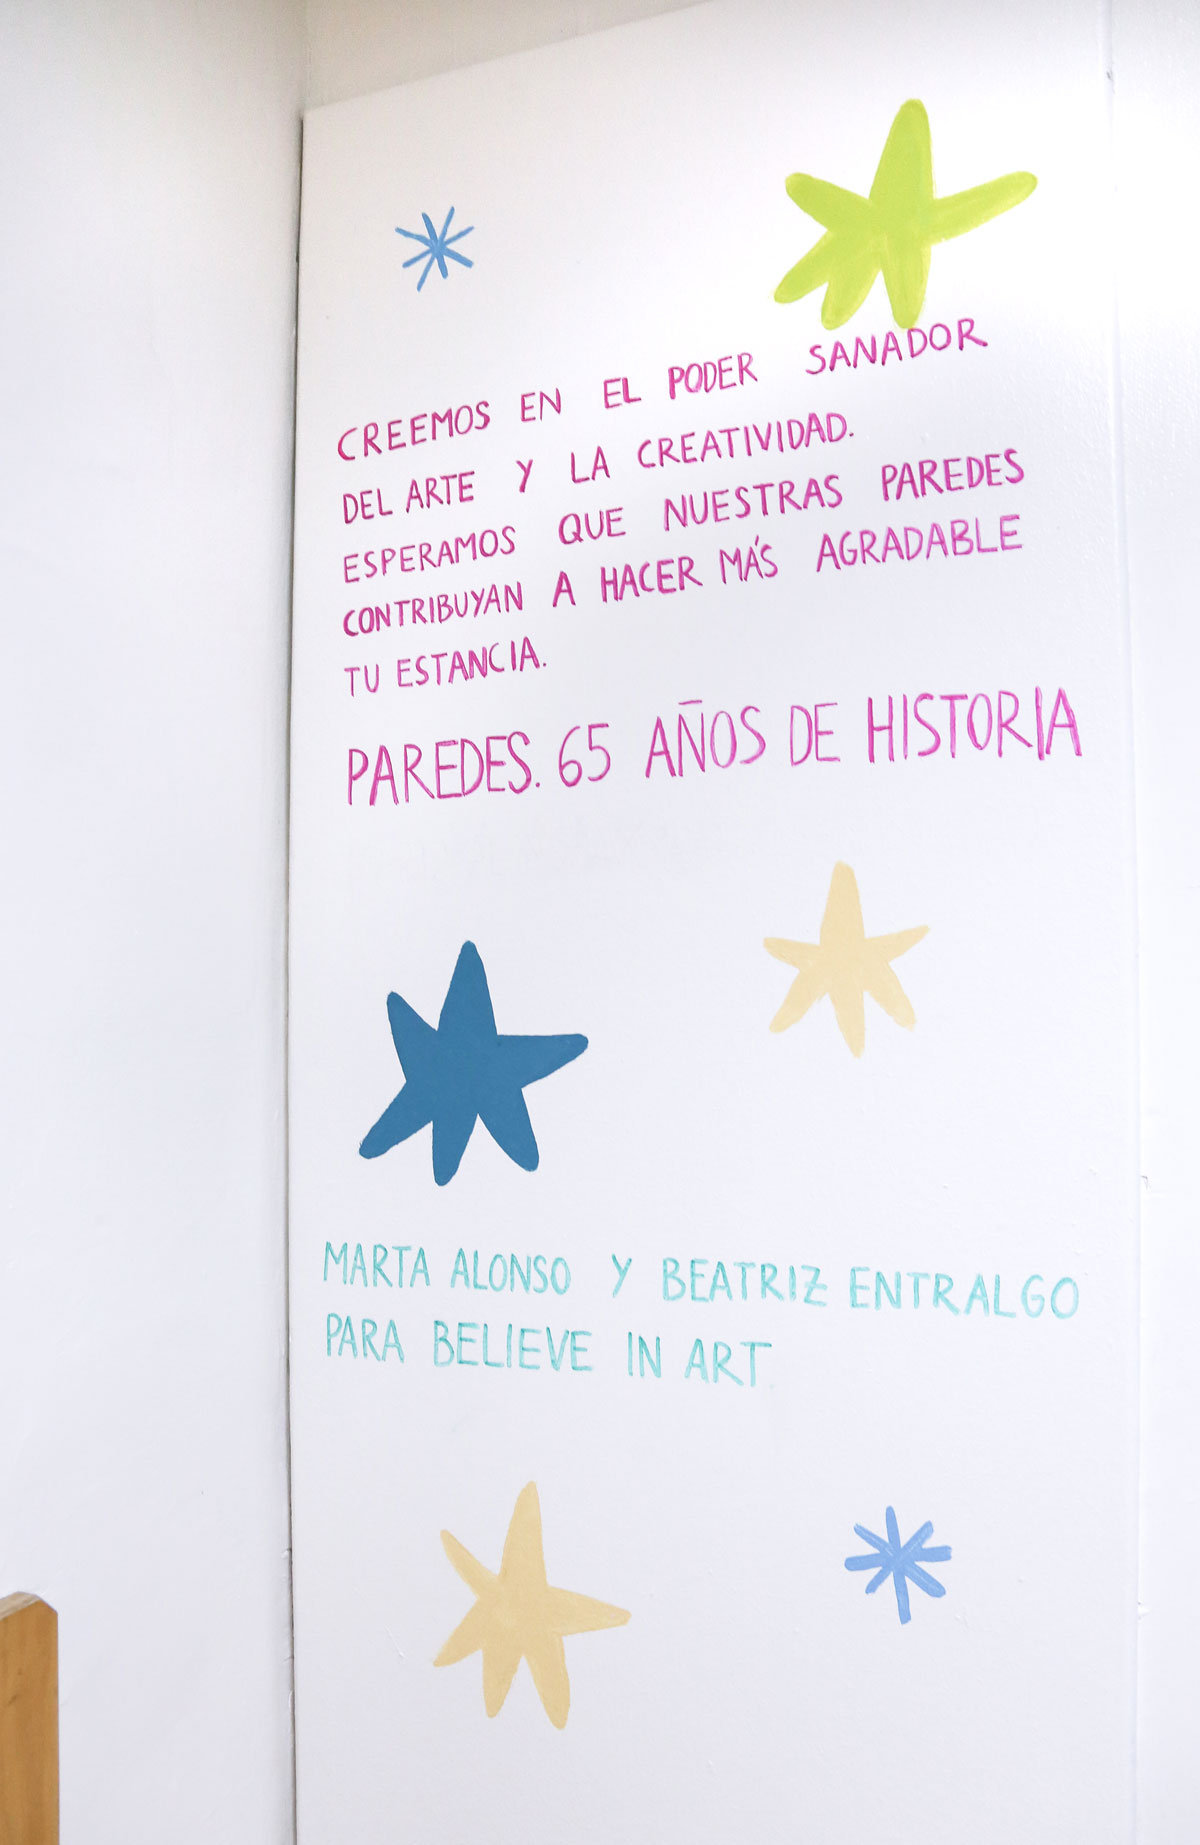 CREEMOS EN EL PODER SANADOR
DEL ARTE Y LA CREATIVIDAD.
ESPERAMOS QUE NUESTRAS PAREDES
CONTRIBUYAN A HACER MÁS AGRADABLE
TU ESTANCIA.
PAREDES. 65 AÑOS DE HISTORIA
MARTA ALONSO Y BEATRIZ ENTRALGO
PARA BELIEVE IN ART